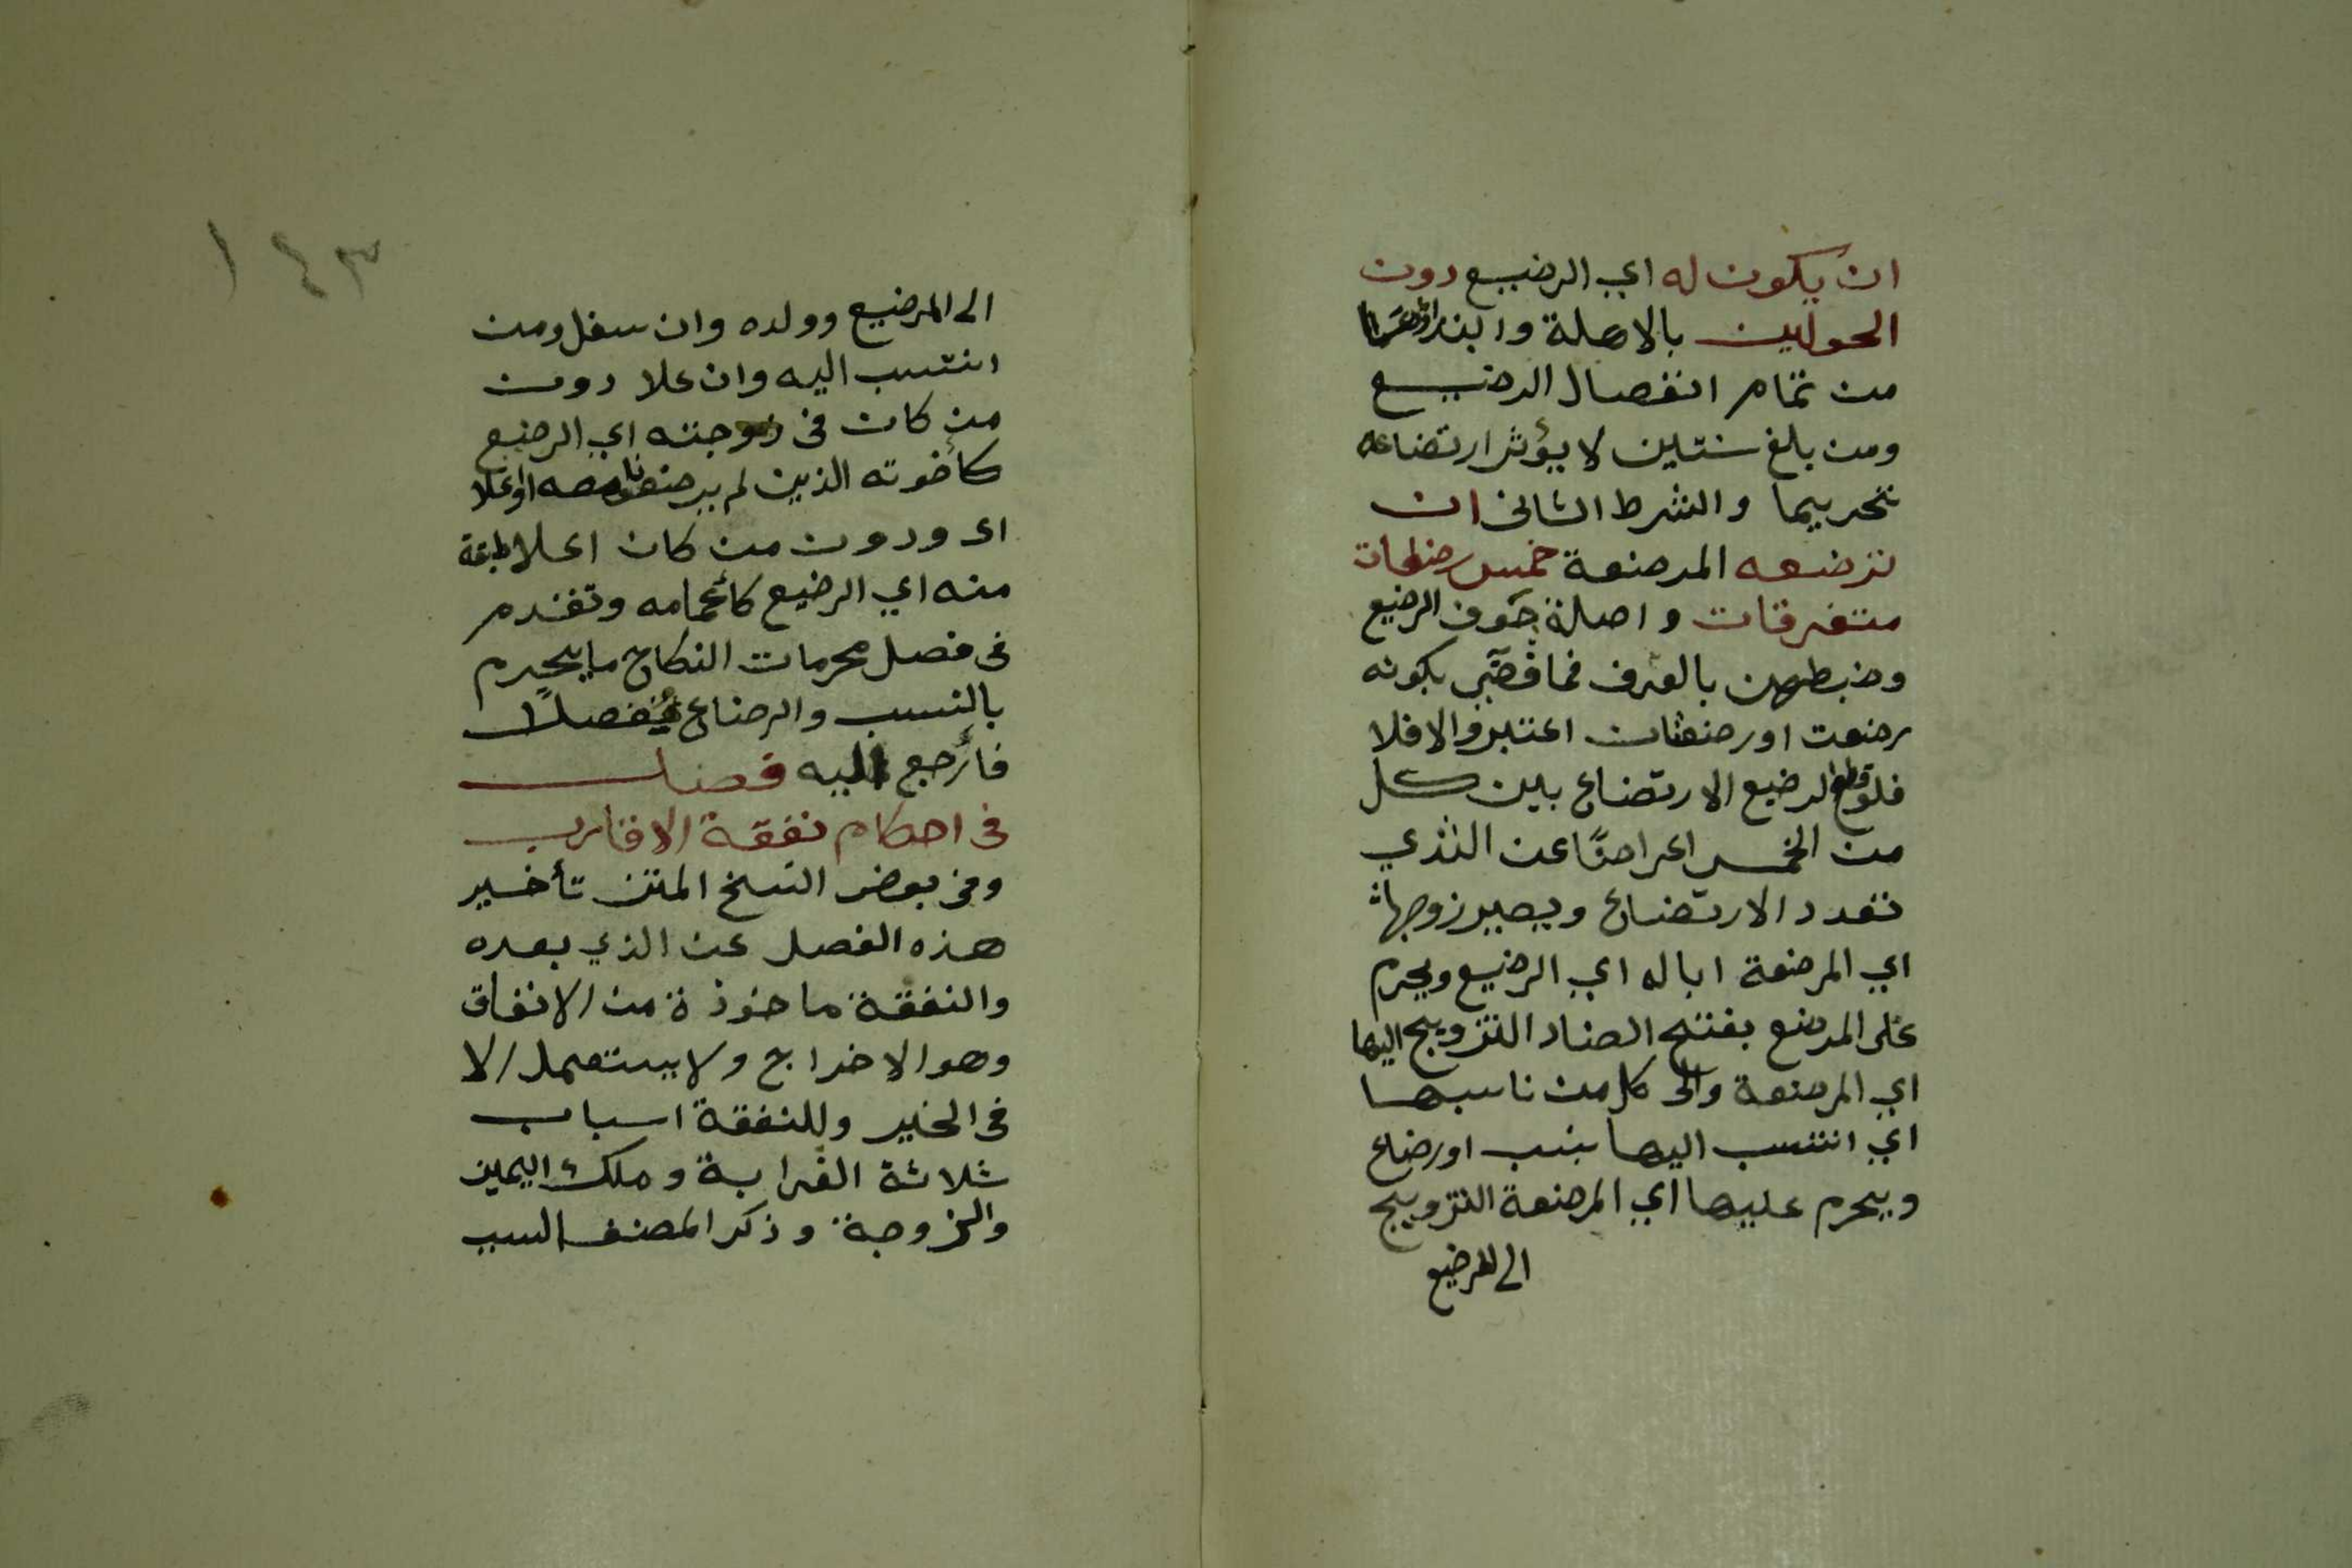 ان يكون له اي الرضيع دون
الحولين بالاهلة وابتداؤهما
من تمام انفصال الرضيع
ومن بلغ سنتين لا يؤثر ارتضاعه
تحريما والشرط الثاني ان
ترضعه المرضعة خمس رضعات
متفرقات واصلة جوف الرضيع
وضبطهن بالعرف فما قضي بكونه
رضعت او رضعات اعتبر والا فلا
فلو قطع الرضيع الارتضاع بين كل
من الخمس اعراضًا عن الثدي
تعدد الارتضاع ويصير زوجها
اي المرضعة ابا له اي الرضيع ويحرم
على المرضع بفتح الضاد التزويج اليها
اي المرضعة والى كل من ناسبها
اي انتسب اليها بنسب او رضاع
ويحرم عليها اي المرضعة التزويج
الى المرضيع
١٤٣
الى المرضيع وولده وان سفل ومن
انتسب اليه وان علا دون
من كان في درجته اي الرضيع
كأخوته الذين لم يرضعوا معه او اعلا
اى ودون من كان اعلا طبقة
منه اي الرضيع كأعمامه وتقدم
في فصل محرمات النكاح ما يحرم
بالنسب والرضاع مفصلًا
فأرجع اليه فصل
في احكام نفقة الاقارب
وفي بعض النسخ المتن تأخير
هذه الفصل عن الذي بعده
والنفقة ماخوذة من الانفاق
وهو الاخراج ولا يستعمل الا
في الخير وللنفقة اسباب
ثلاثة القرابة وملك اليمين
والزوجة وذكر المصنف السبب